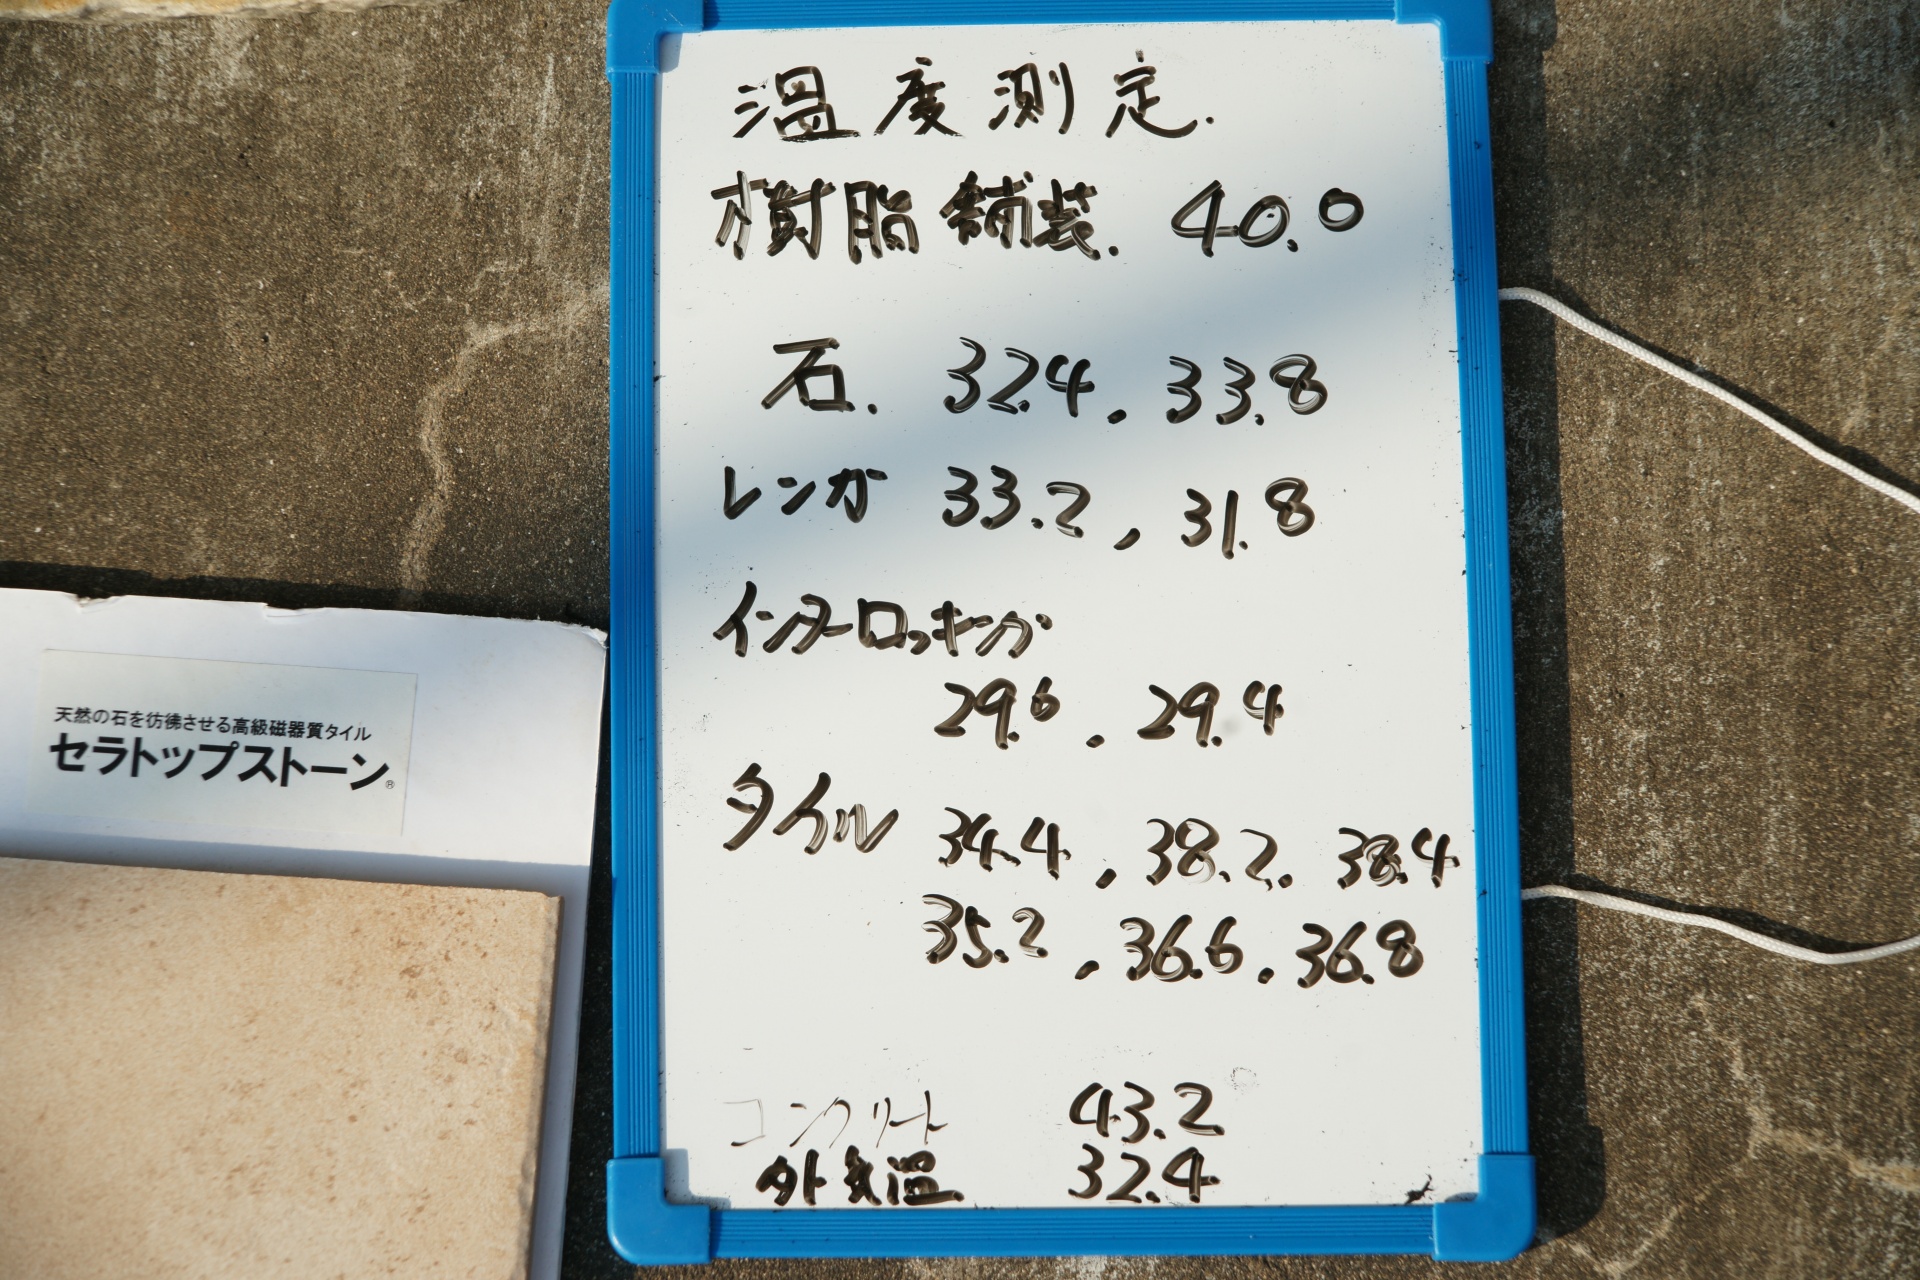 温度測定.
樹脂舗装. 40.0
石. 32.4, 33.8
レンガ 33.2, 31.8
インターロッキング
29.6, 29.4
タイル 34.4, 38.2. 38.4
35.2, 36.6, 36.8
コンクリート 43.2
外気温. 32.4
天然の石を彷彿させる高級磁器質タイル
セラトップストーン®